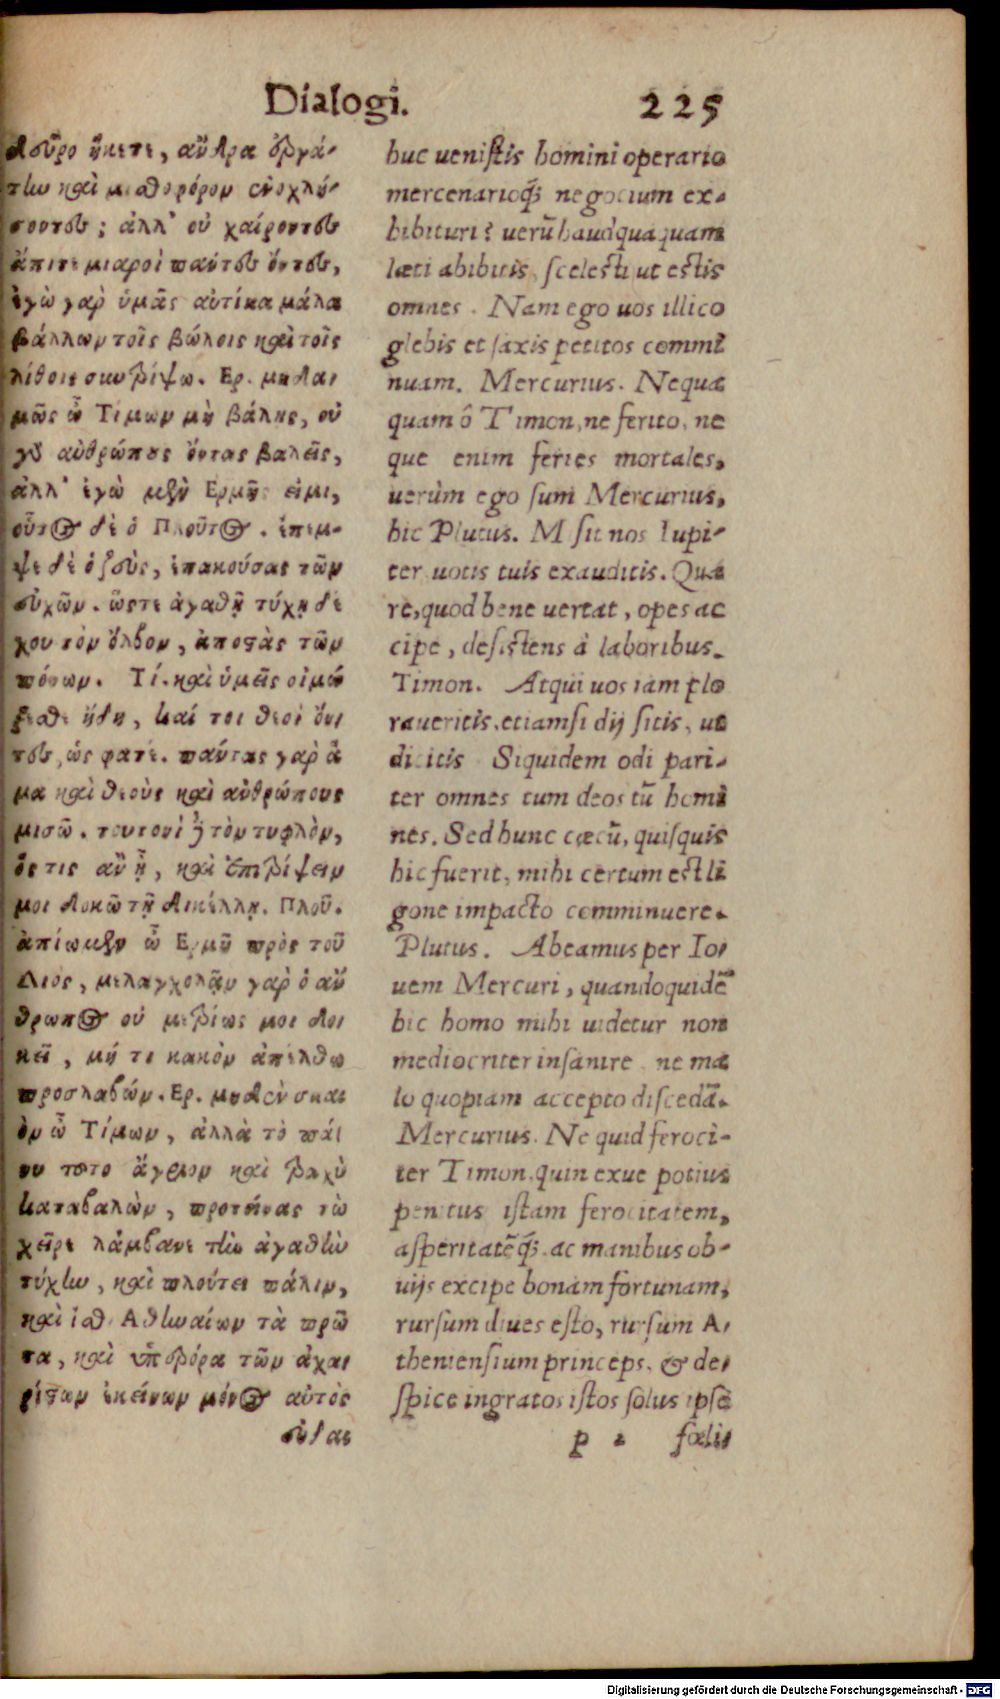 Dialogi. 225
δεῦρο ἥκετε, ἄνδρα ἐργά-
την καὶ μισθοφόρον ἐνοχλή-
σοντες; ἀλλ' οὐ χαίροντες
ἄπιτε μιαροὶ πάντες ὄντες,
ἐγὼ γὰρ ὑμᾶς αὐτίκα μάλα
βάλλων τοῖς βώλοις καὶ τοῖς
λίθοις συντρίψω. Ερ. μηδα-
μῶς ὦ Τίμων μὴ βάλῃς, οὐ
γὰρ ἀνθρώπους ὄντας βαλεῖς,
ἀλλ' ἐγὼ μὲν Ερμῆς εἰμι,
οὗτος δὲ ὁ Πλοῦτος. ἔπεμ-
ψε δὲ ὁ ζεὺς, ἐπακούσας τῶν
εὐχῶν. ὥστε ἀγαθῇ τύχῃ δέ
χου τὸν ὄλβον, ἀποστὰς τῶν
πόνων. Τί. καὶ ὑμεῖς οἰμώ
ξεσθε ἤδη, καί τοι θεοὶ ὄν
τες, ὡς φατέ. πάντας γὰρ ἅ
μα καὶ θεοὺς καὶ ἀνθρώπους
μισῶ. τουτονὶ δὲ τὸν τυφλὸν,
ὅς τις ἂν ᾖ, καὶ ἐπιτρίψειν
μοι δοκῶ τῇ δικέλλῃ. Πλοῦ.
ἀπίωμεν ὦ Ερμῆ πρὸς τοῦ
Διὸς, μελαγχολᾷν γὰρ ὁ ἄν
θρωπος οὐ μετρίως μοι δο
κεῖ, μή τι κακὸν ἀπέλθω
προσλαβών. Ερ. μηδὲν σκαι
ὸν ὦ Τίμων, ἀλλὰ τὸ πά
νυ τοῦτο ἄγριον καὶ τραχὺ
καταβαλὼν, προτείνας τὼ
χεῖρε λάμβανε τὴν ἀγαθὴν
τύχην, καὶ πλούτει πάλιν,
καὶ ἴσθι Αθηναίων τὰ πρῶ
τα, καὶ ὑπερόρα τῶν ἀχα
ρίστων ἐκείνων μόνος αὐτὸς
εὐδαι
huc uenistis homini operario
mercenarioq́; negocium ex-
hibituri? uerũ haudquaquam
læti abibitis, scelesti ut estis
omnes. Nam ego uos illico
glebis et saxis petitos commi
nuam. Mercurius. Nequa
quam ô Timon, ne ferito, ne
que enim feries mortales,
uerùm ego sum Mercurius,
hic Plutus. Misit nos Iupi-
ter uotis tuis exauditis. Qua
re, quod bene uertat, opes ac
cipe, desistens à laboribus.
Timon. Atqui uos iam plo
raueritis, etiamsi dij sitis, ut
dicitis Siquidem odi pari-
ter omnes tum deos tũ homi
nes. Sed hunc cæcũ, quisquis
hic fuerit, mihi certum est li
gone impacto comminuere.
Plutus. Abeamus per Io
uem Mercuri, quandoquidẽ
hic homo mihi uidetur non
mediocriter insanire, ne ma
lo quopiam accepto discedã.
Mercurius. Ne quid feroci-
ter Timon, quin exue potius
penitus istam ferocitatem,
asperitatẽq́; ac manibus ob-
uijs excipe bonam fortunam,
rursum diues esto, rursum A
theniensium princeps, & de
spice ingratos istos solus ipse
p fœlix
Digitalisierung gefördert durch die Deutsche Forschungsgemeinschaft - DFG